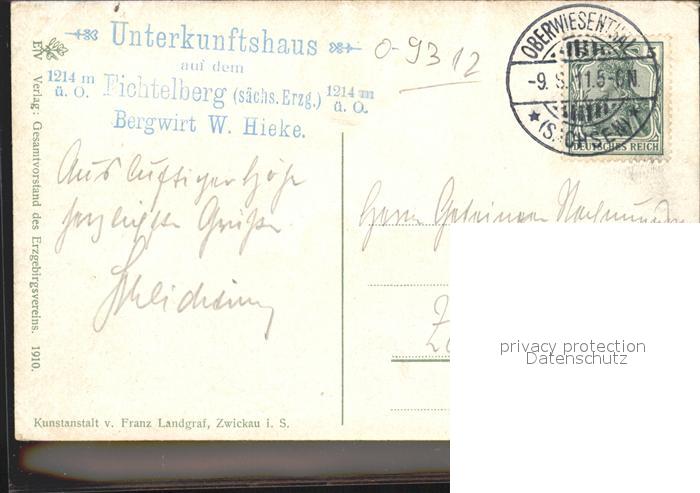 Unterkunftshaus
auf dem
1214 m Fichtelberg (sächs. Erzg.) 1214 m
ü. O. ü. O.
Bergwirt W. Hieke.
0-9312
OBERWIESENTHAL
-9. 8. 11. 5-6N.
★ (SACHSEN) ★
5
DEUTSCHES REICH
Aus luftiger Höhe
herzlichste Grüße
Herrn Geheimen Rechnungs
privacy protection
Datenschutz
EV Verlag: Gesamtvorstand des Erzgebirgsvereins. 1910.
Kunstanstalt v. Franz Landgraf, Zwickau i. S.